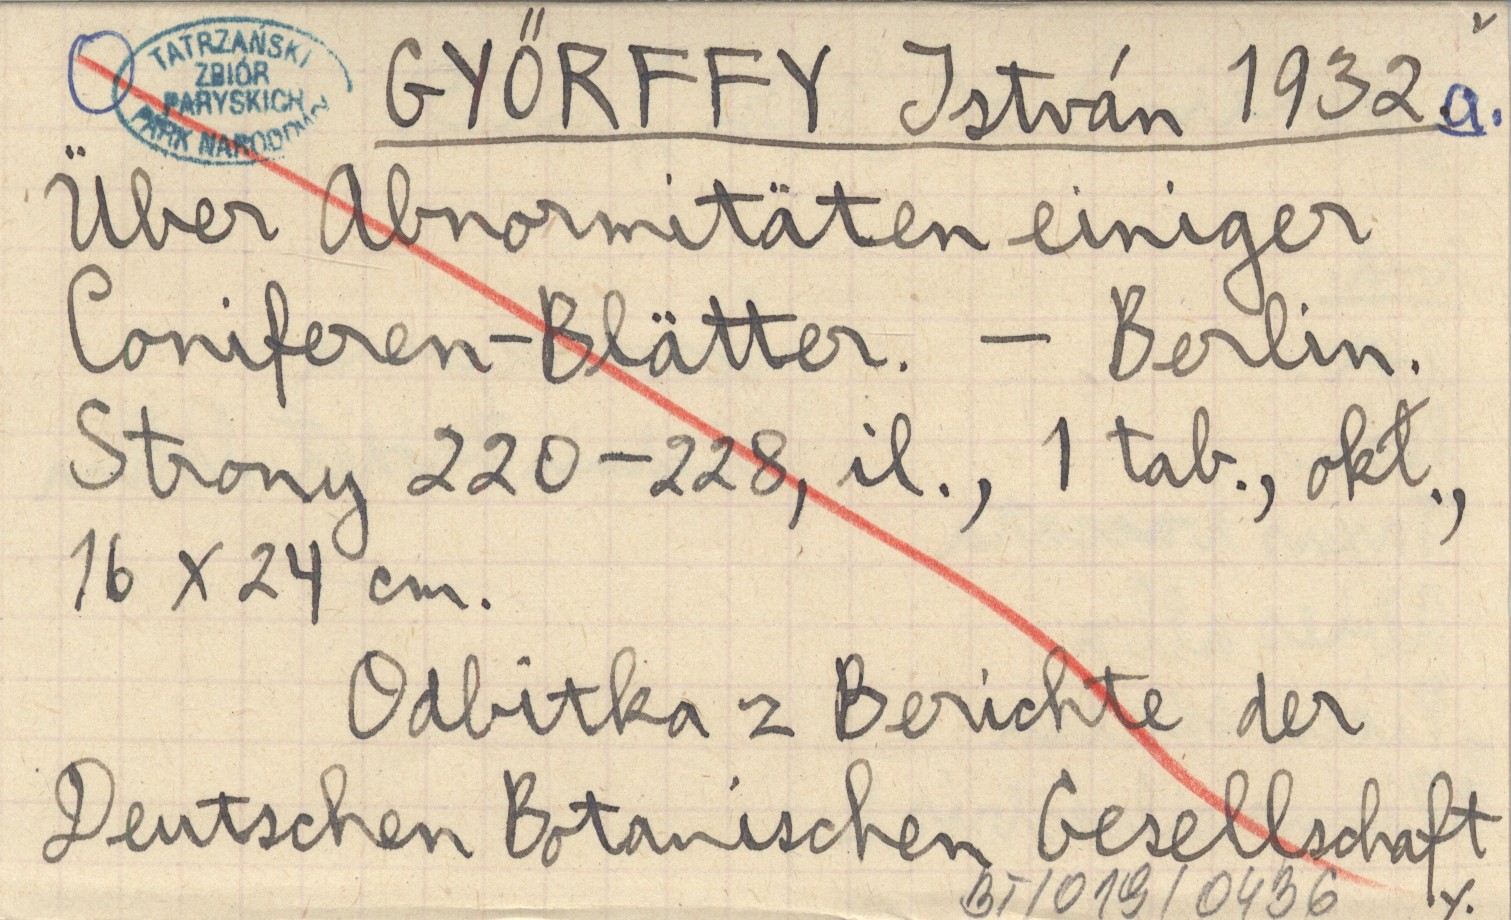 TATRZAŃSKI
ZBIÓR
PARYSKICH
PARK NARODOWY
GYŐRFFY István 1932 a.
Über Abnormitäten einiger
Coniferen-Blätter. — Berlin.
Strony 220-228, il., 1 tab., okł.,
16 x 24 cm.
Odbitka z Berichte der
Deutschen Botanischen Gesellschaft
BT/019/0436